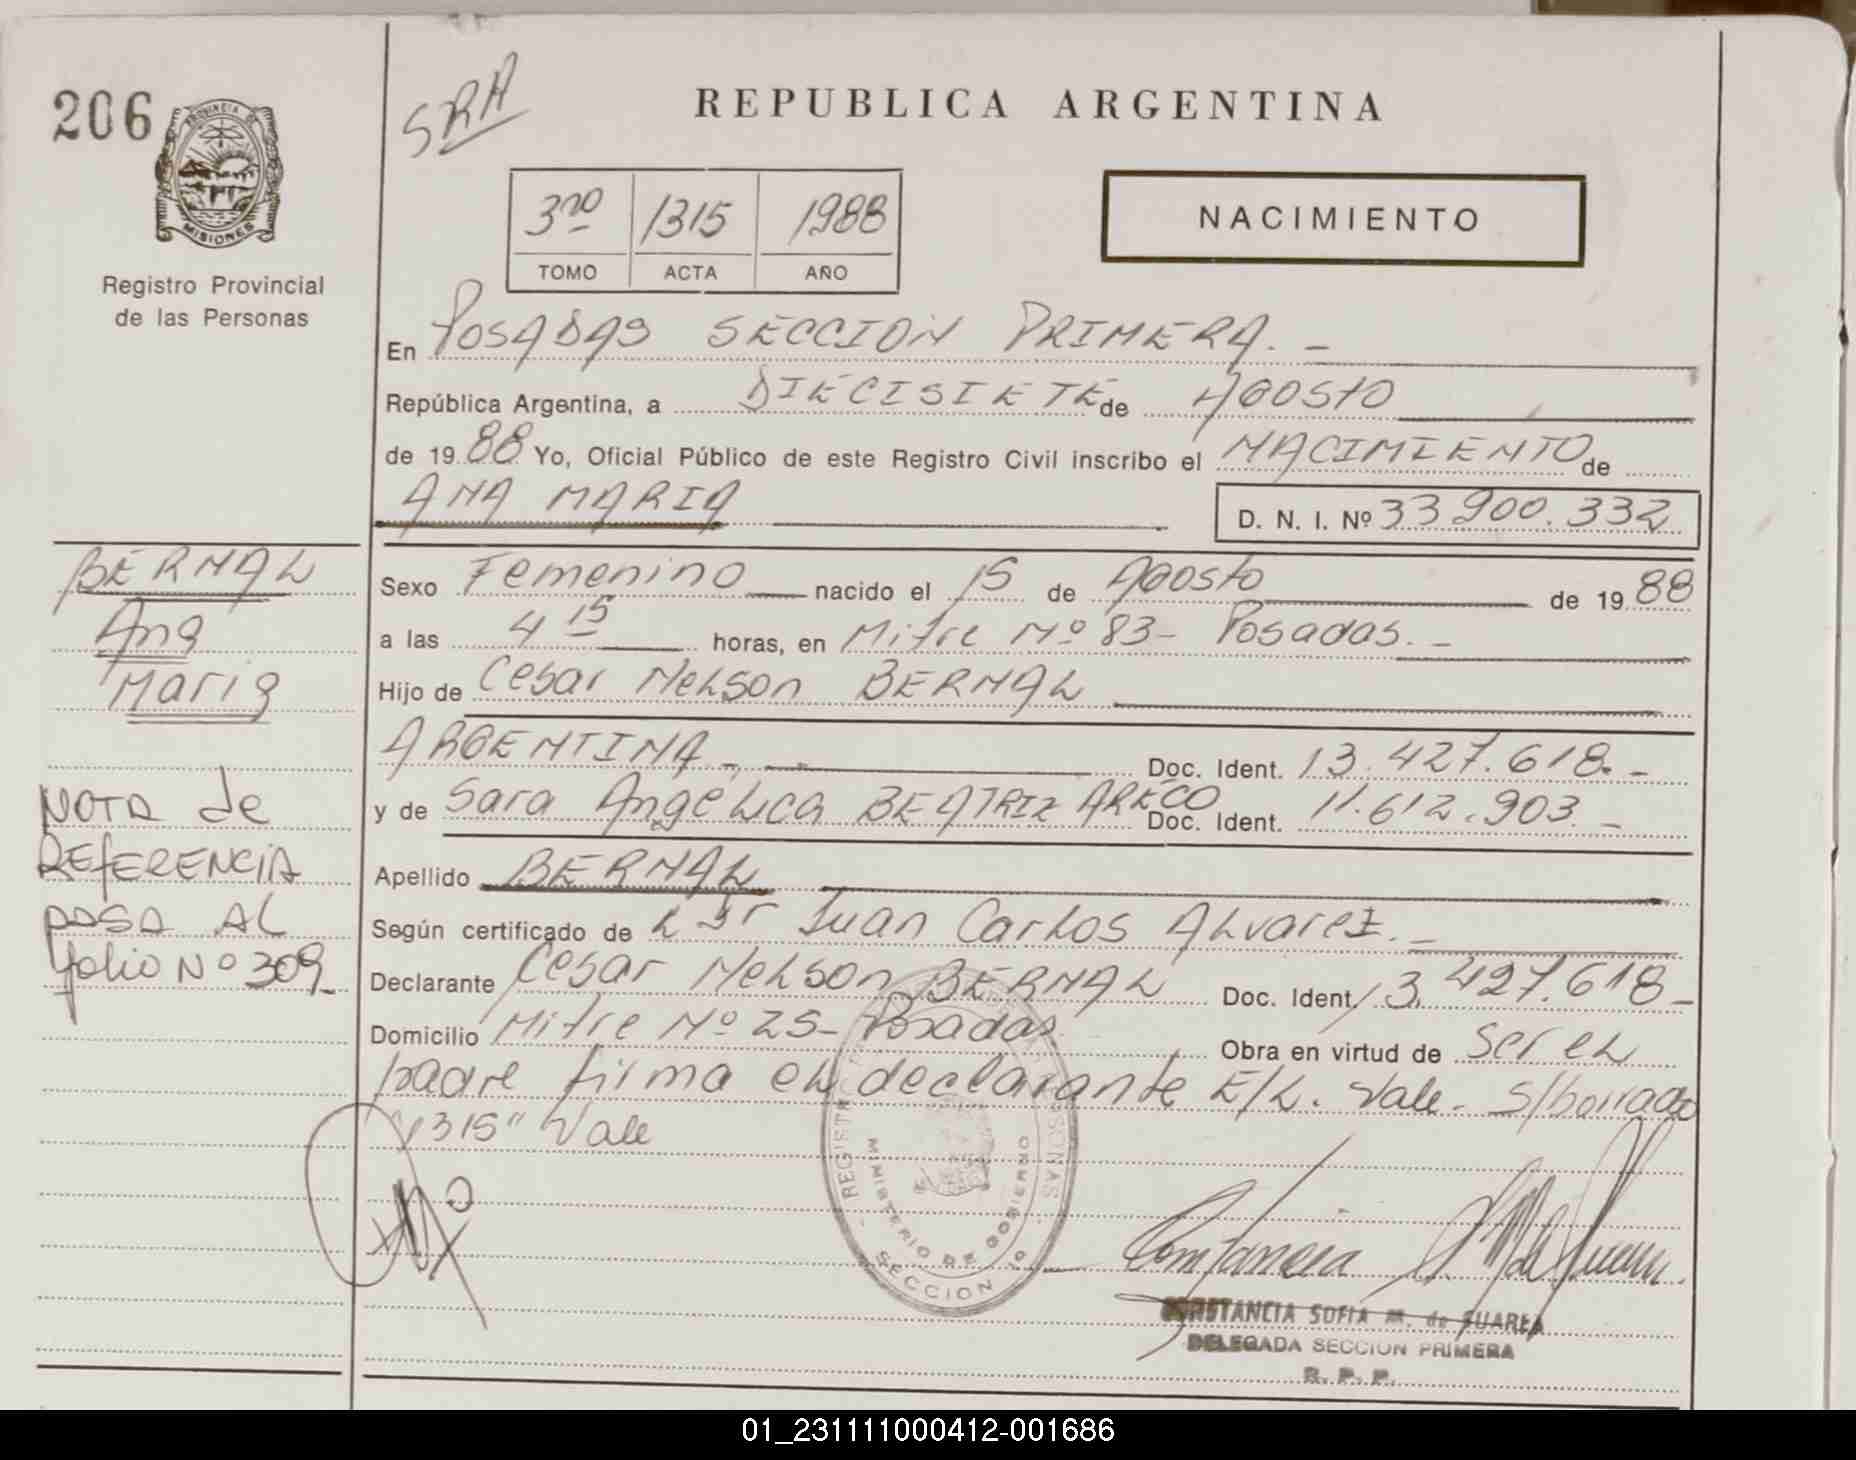 206
SRA
REPUBLICA ARGENTINA
PROVINCIA DE
MISIONES
Registro Provincial
de las Personas
3ro 1315 1988
TOMO ACTA AÑO
NACIMIENTO
En POSADAS SECCION PRIMERA. –
República Argentina, a DIECISIETE de AGOSTO
de 1988 Yo, Oficial Público de este Registro Civil inscribo el NACIMIENTO de
ANA MARIA
D. N. I. Nº 33 900.332
BERNAL
Ana
Maria
Sexo Femenino nacido el 15 de Agosto de 1988
a las 4 15 horas, en Mitre Nº 83- Posadas. –
Hijo de Cesar Nelson BERNAL
ARGENTINA – Doc. Ident. 13.427.618. –
y de Sara Angelica BEATRIZ ARECO Doc. Ident. 11.612.903 –
Apellido BERNAL
Según certificado de L Dr Juan Carlos Alvarez. –
Declarante Cesar Nelson BERNAL Doc. Ident. 13.427.618 –
Domicilio Mitre Nº 25- Posadas. Obra en virtud de ser el
padre firma el declarante E/L. Vale. S/borrado
"1315" Vale
NOTA de
REFERENCIA
PASA AL
folio Nº 309
REGISTRO PERSONAS
MINISTERIO DE GOBIERNO
SECCION 1º
CONSTANCIA SOFIA M. de SUAREZ
DELEGADA SECCION PRIMERA
R. P. P.
01_231111000412-001686